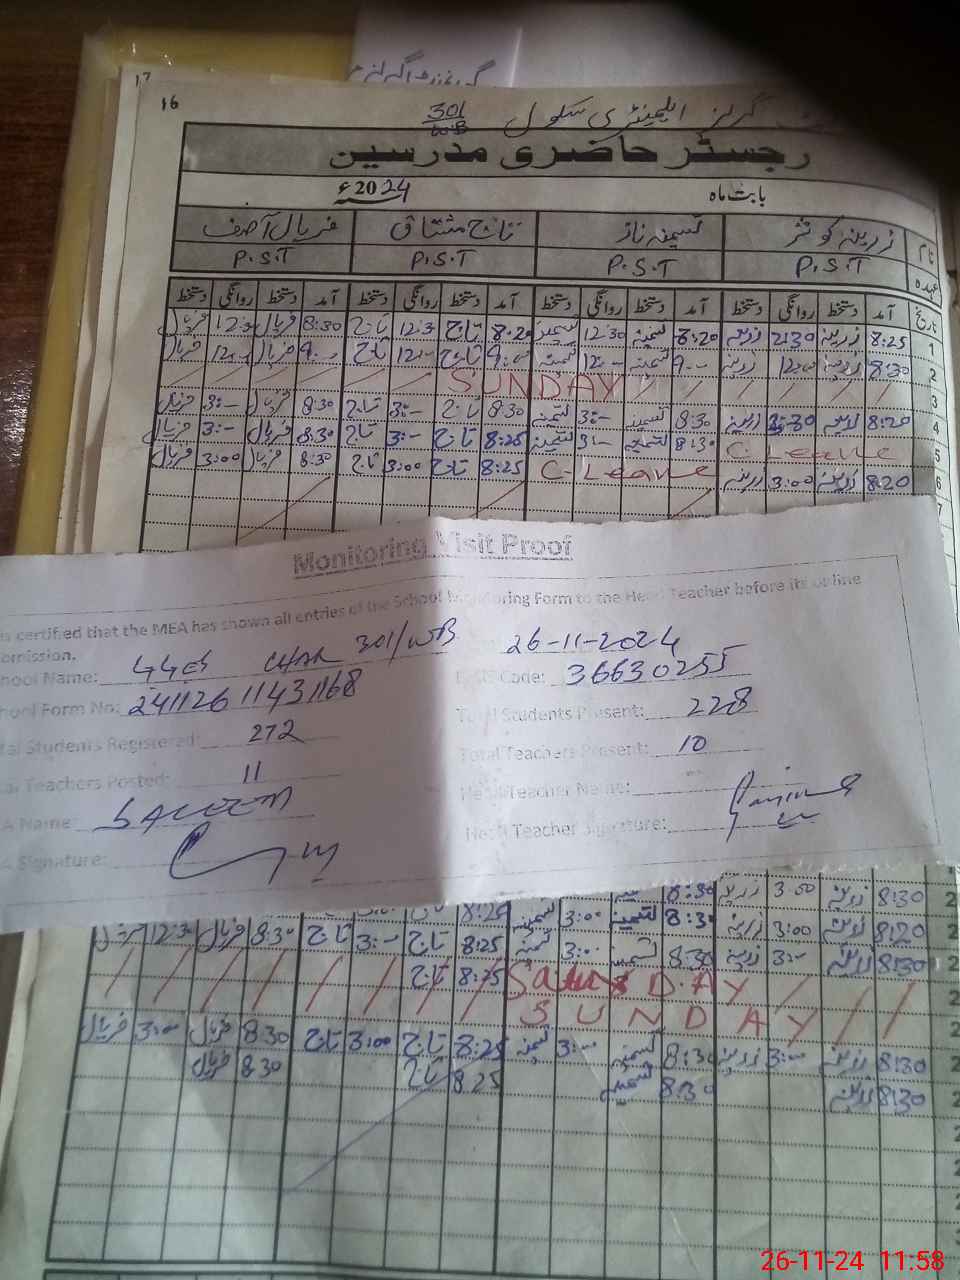 16
گرلز ایلیمنٹری سکول 301/WB
رجسٹر حاضری مدرسین
بابت ماہ 2024ء
نام زرینہ کوثر تسمینہ ناز تاج مشتاق فریال آصف
عہدہ P.S.T P.S.T P.S.T P.S.T
تاریخ آمد دستخط روانگی دستخط آمد دستخط روانگی دستخط آمد دستخط روانگی دستخط آمد دستخط روانگی دستخط
1 8:25 زرینہ 12:30 زرینہ 8:20 تسمینہ 12:30 تسمینہ 8:20 تاج 12:30 تاج 8:30 فریال 12:30 فریال
2 8:30 زرینہ 12:00 زرینہ 9:00 تسمینہ 12:00 تسمینہ 9:00 تاج 12:00 تاج 9:00 فریال 12:00 فریال
3 SUNDAY
4 8:20 زرینہ زرینہ 8:30 تسمینہ 3:- تسمینہ 8:30 تاج 3:- تاج 8:30 فریال 3:- فریال
5 C-Leave 8:30 تسمینہ 3:- تسمینہ 8:25 تاج 3:- تاج 8:30 فریال 3:- فریال
6 8:20 زرینہ 3:00 زرینہ C-Leave 8:25 تاج 3:00 تاج 8:30 فریال 3:00 فریال
7
Monitoring Visit Proof
is certified that the MEA has shown all entries of the School Monitoring Form to the Head Teacher before its online
omission.
School Name: GGES CHAK 301/WB 26-11-2024
School Form No: 24112611431168 Code: 36630255
Total Students Registered: 272 Total Students Present: 228
Teachers Posted: 11 Total Teachers Present: 10
Name: SALEEM Head Teacher Name:
Signature: Head Teacher Signature:
8:30 زرینہ 3:00 زرینہ 8:30
8:20 زرینہ 3:00 زرینہ 8:30 تسمینہ 3:00 تسمینہ 8:25
8:30 زرینہ 3:- زرینہ 8:30 تسمینہ 3:00 تسمینہ 8:25 تاج 3:- تاج 8:30 فریال 12:30 فریال
SaturDAY 8:25 تاج
SUNDAY
8:30 زرینہ 3:00 زرینہ 8:30 تسمینہ 3:00 تسمینہ 8:25 تاج 3:00 تاج 8:30 فریال 3:00 فریال
8:30 زرینہ 8:30 تسمینہ 8:25 تاج 8:30 فریال
26-11-24 11:58